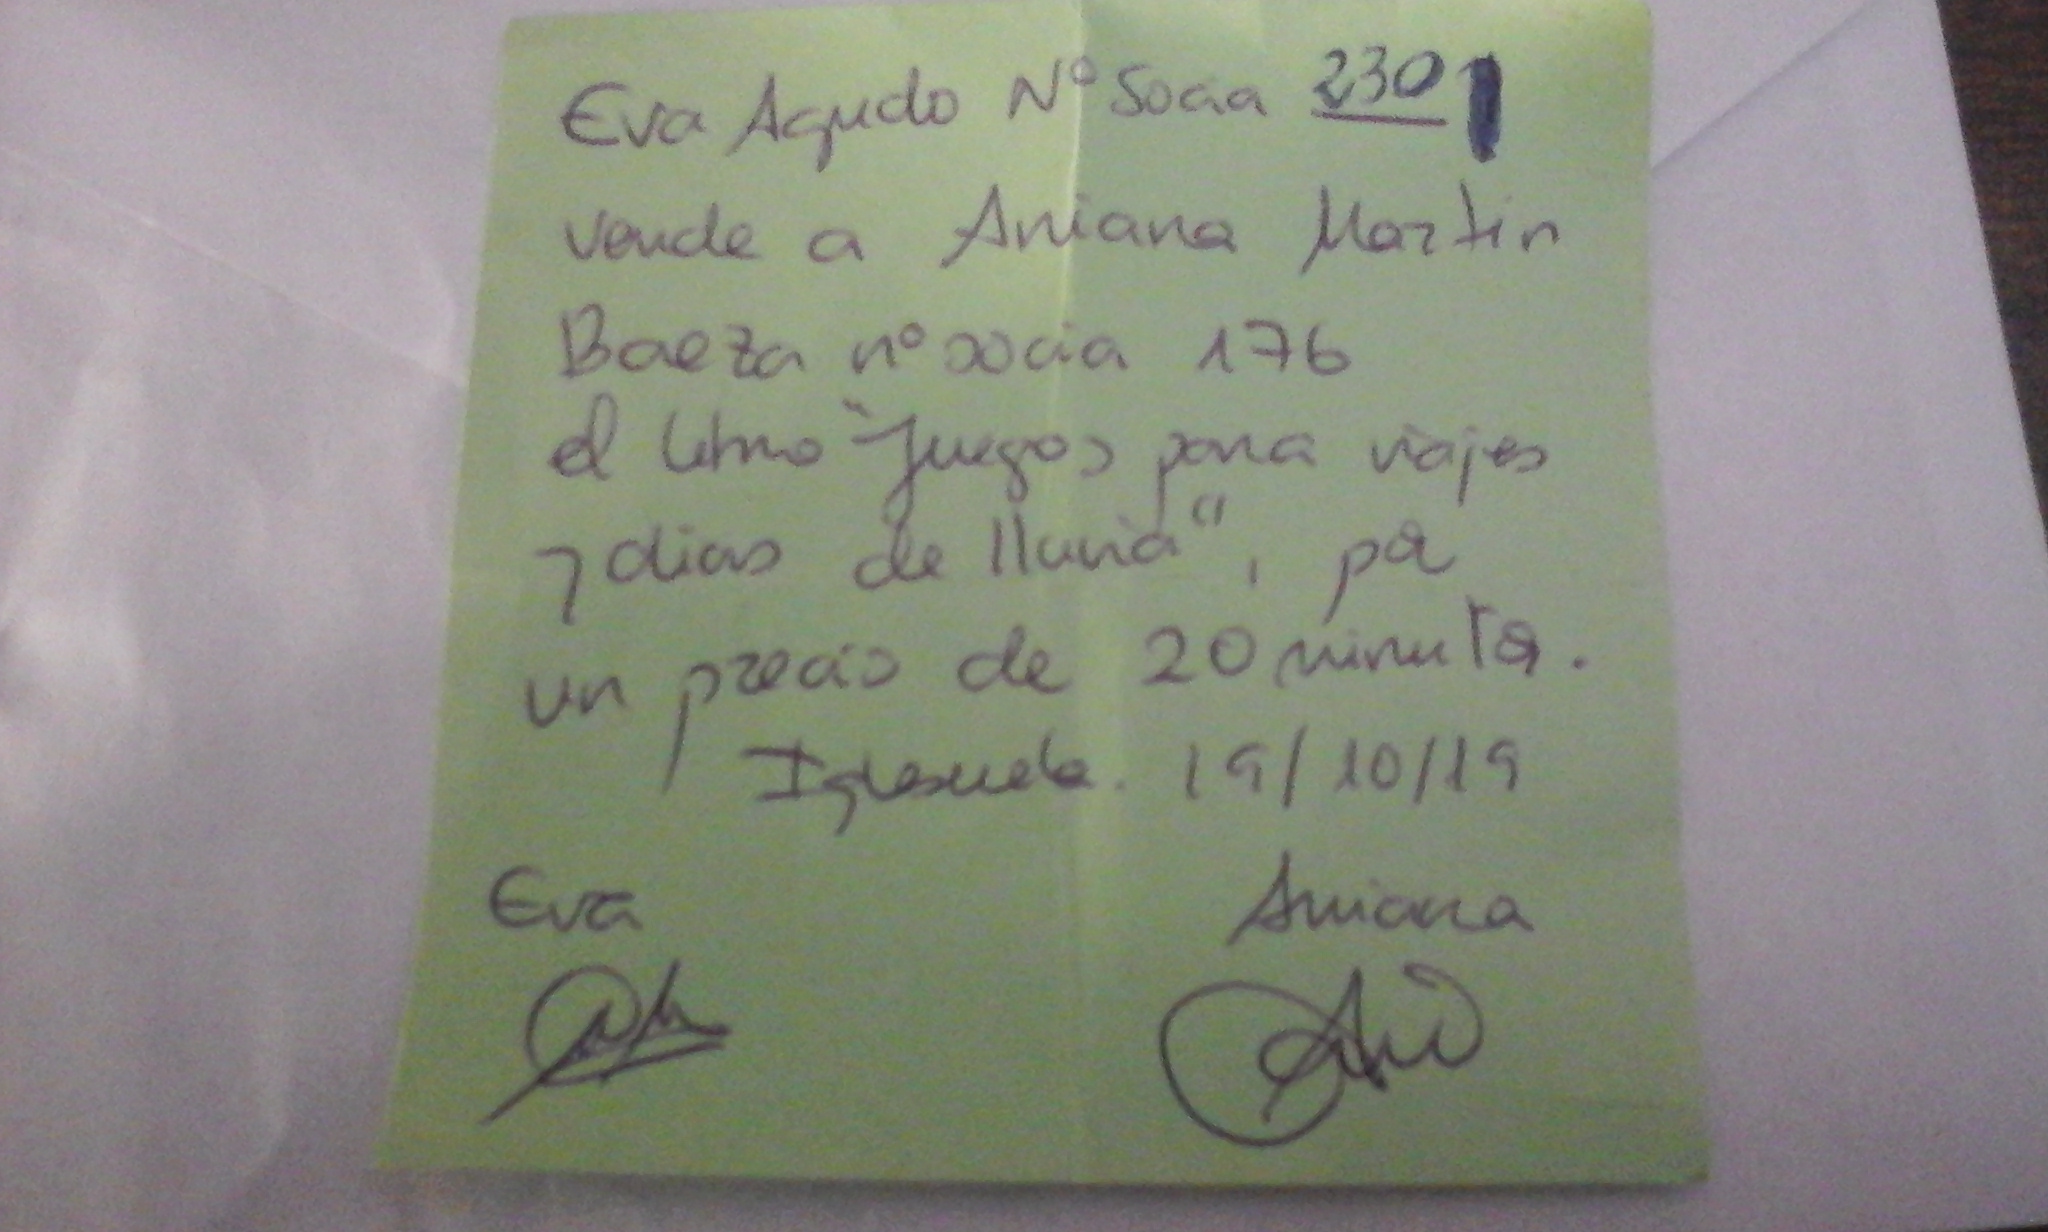 Eva Agudo Nº Socia 230
vende a Aniana Martin
Baeza nº socia 176
el libro "Juegos para viajes
y dias de lluvia", por
un precio de 20 minutos.
Iglesuela. 19/10/19
Eva Aniana